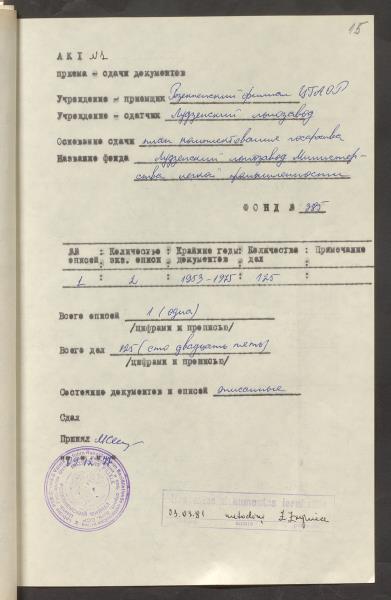 15
АКТ №1
приема - сдачи документов
Учреждение - приемщик Резекненский филиал ЦГАОР
Учреждение - сдатчик Лудзенский льнозавод
Основание сдачи план комплектования госархива
Название фонда Лудзенский льнозавод Министер-
ства легкой промышленности
ФОНД № 385
№№ описей : Количество экз. описи : Крайние годы документов : Количество дел : Примечание
1 2 1953-1975 125
Всего описей 1 (одна)
/цифрами и прописью/
Всего дел 125 (сто двадцать пять)
/цифрами и прописью/
Состояние документов и описей описанные
Сдал
Принял
03.03.81 metodiķe